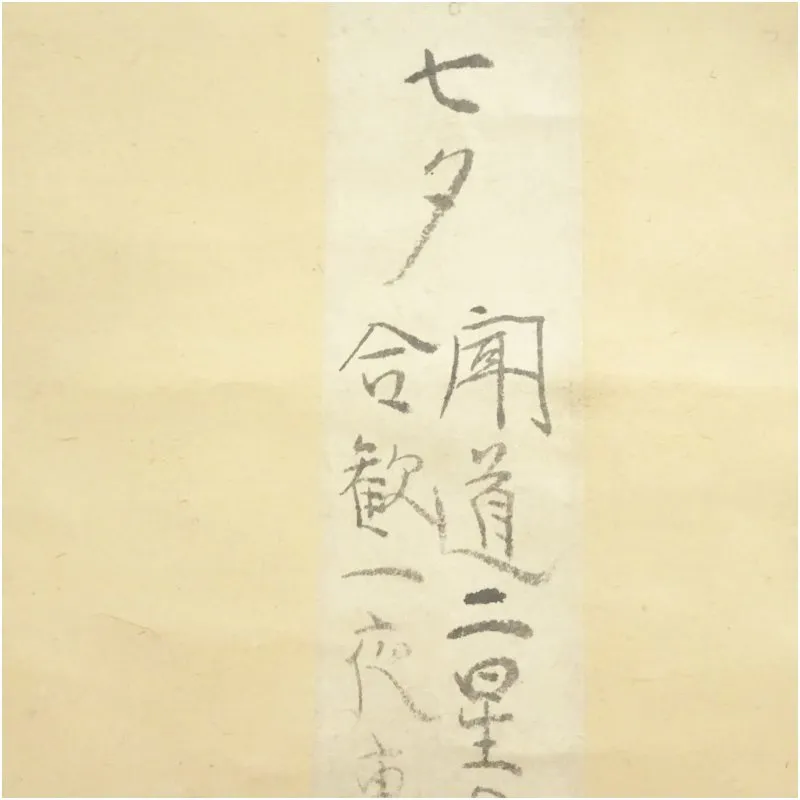 七夕
聞道二星
合歓一夜